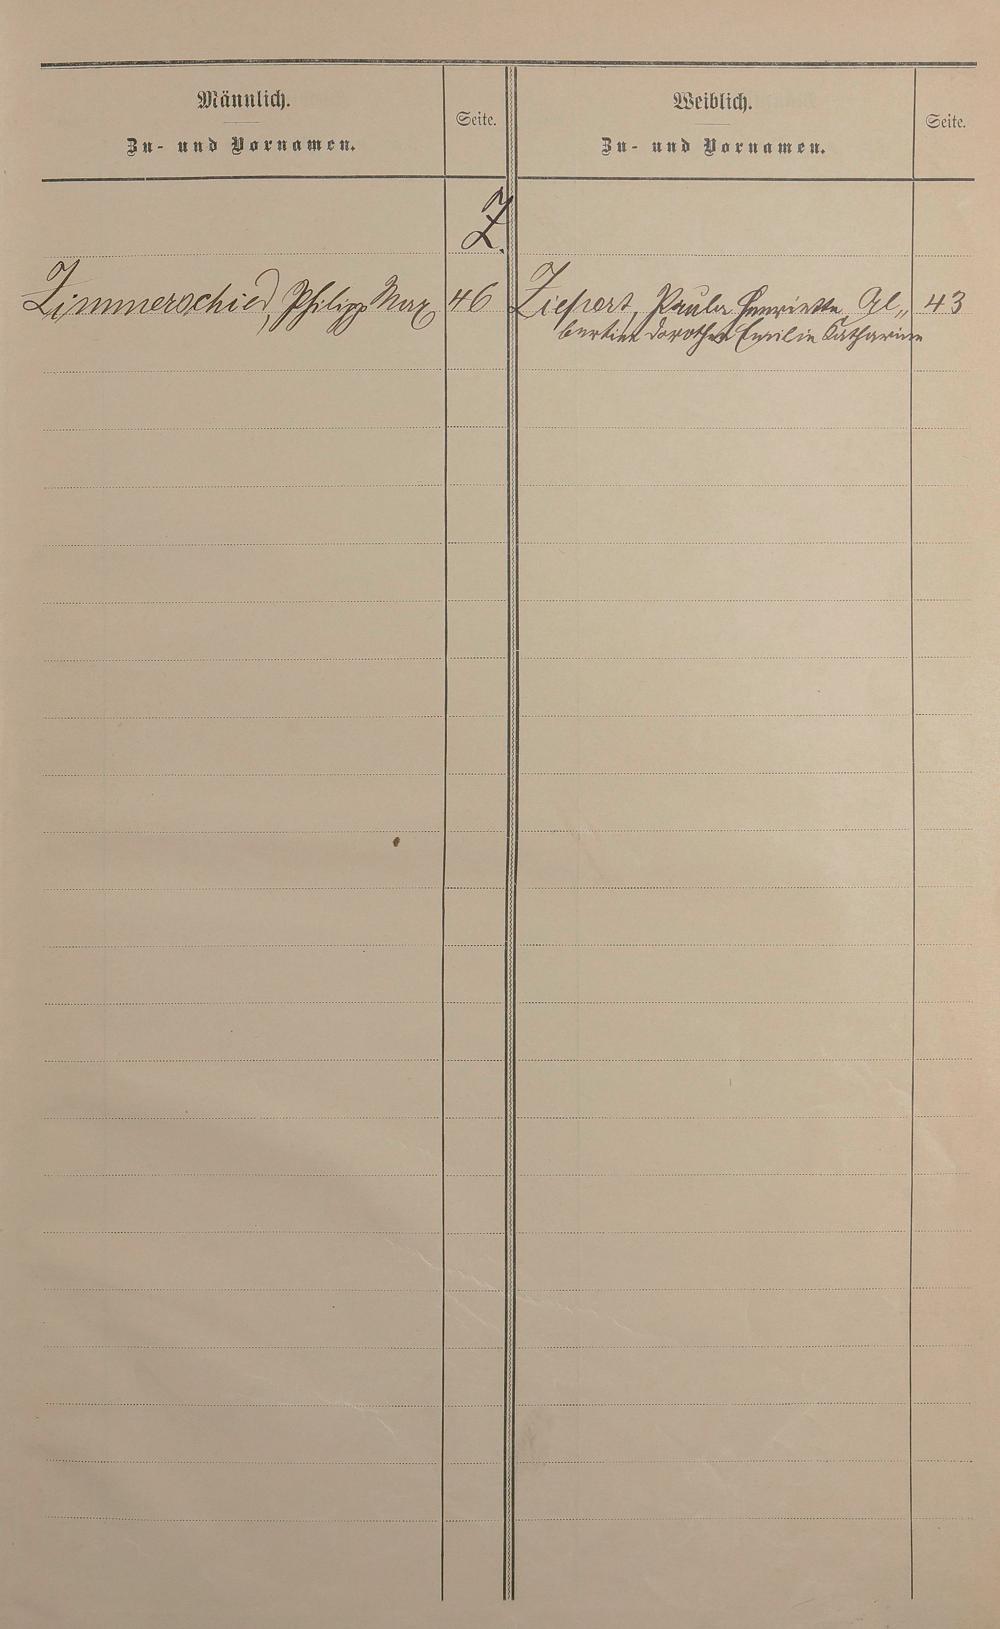 Männlich.
Zu- und Vornamen.
Seite.
Weiblich.
Zu- und Vornamen.
Seite.
Z.
Zimmerschied, Philipp Max 46
Ziepert, Paula Henriette Al„ 43
bertine Dorothea Emilie Katharine